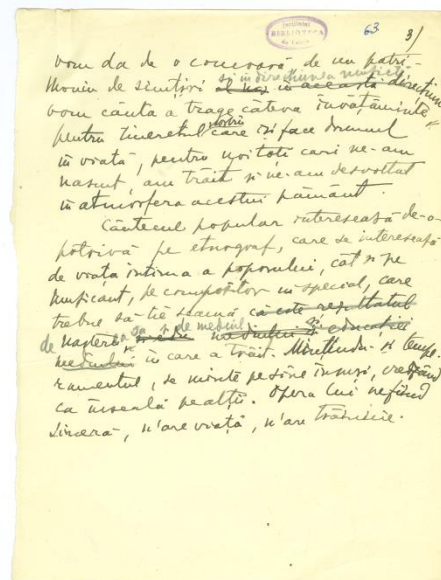 63.
3/
BIBLIOTECA
vom da de o comoară, de un patri-
moniu de simțiri și în direcțiunea muzicii în această direcțiune
vom căuta a trage câteva învățăminte
pentru tineretul nostru care își face drumul
în viață, pentru noi toți cari ne-am
nascut, am trăit și ne-am desvoltat
in atmosfera acestui pământ.
Cântecul popular interesează de-o-
potrivă pe etnograf, care se interesează
de viața intima a poporului, cât și pe
muzicant, pe compozitor in special, care
trebue să tie seamă că este resultatul
de nașterea sa și de mediul mediului și educației
mediului in care a trăit. Mințindu-și tempe-
ramentul, se minte pe sine însuși, crezând
ca înseală pe alții. Opera lui nefiind
sinceră, n'are viață, n'are trăinicie.